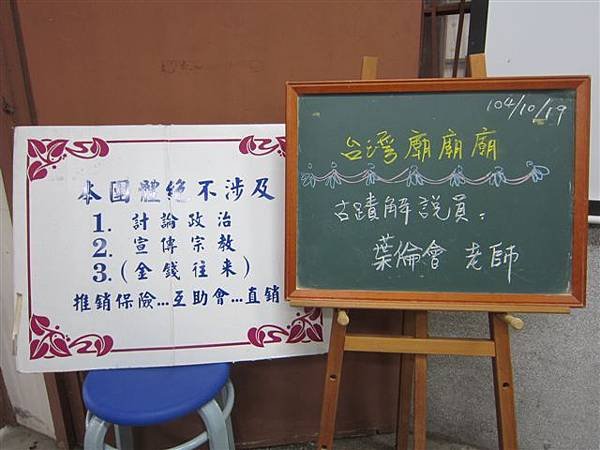 本團體絕不涉及
1. 討論政治
2. 宣傳宗教
3. (金錢往來)
推銷保險...互助會...直銷
104/10/19
台灣廟廟廟
古蹟解說員。
葉倫會 老師